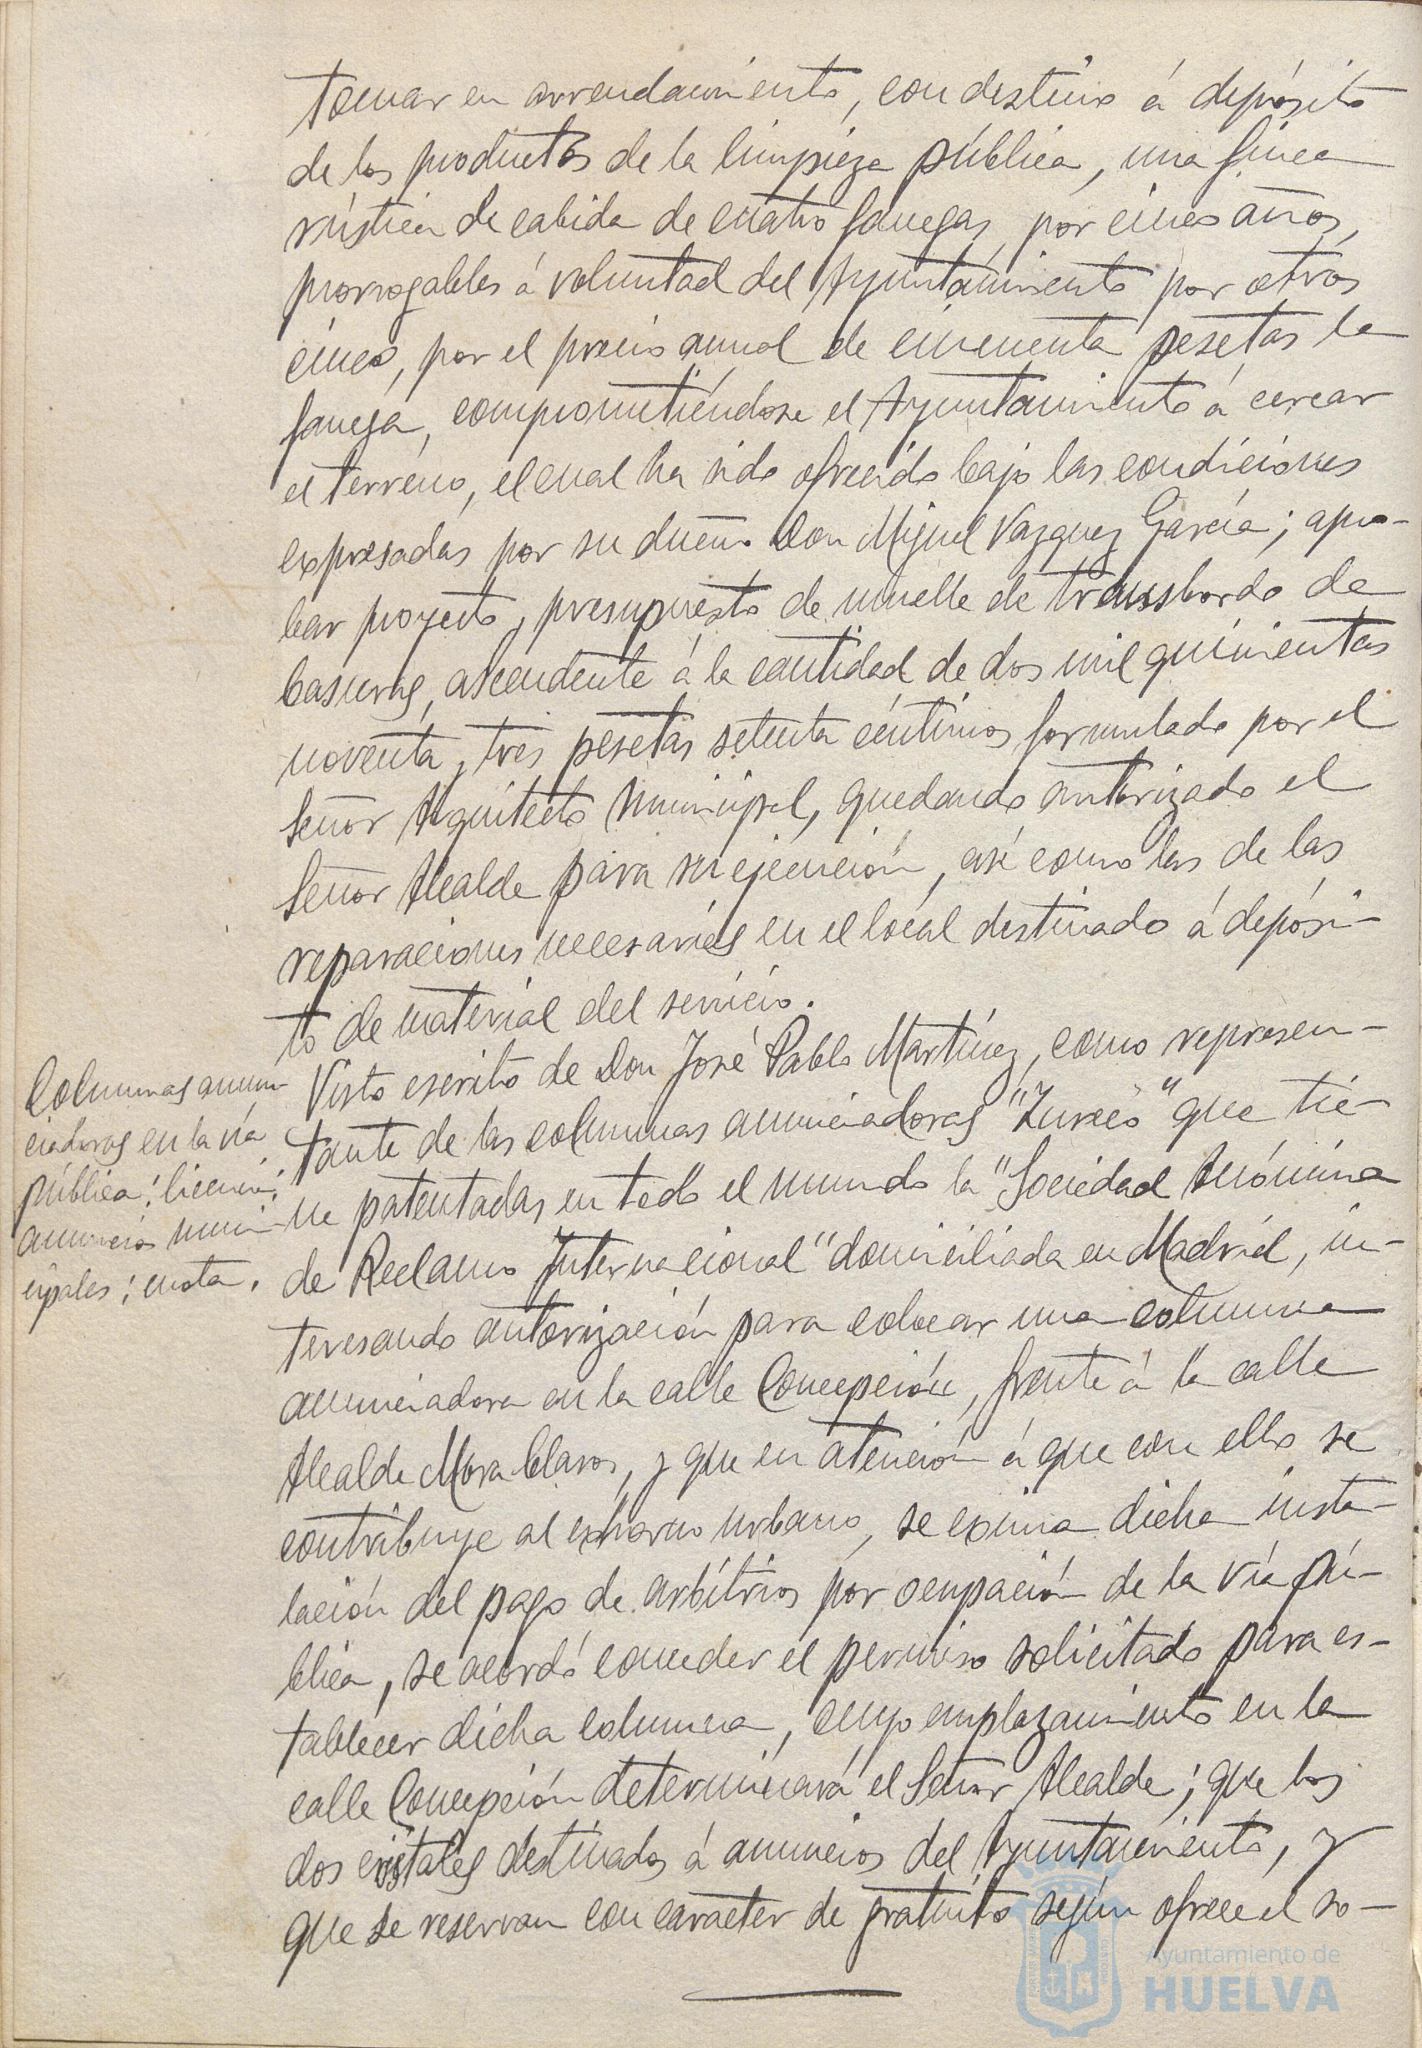 tomar en arrendamiento, con destino á depósito
de los productos de la limpieza pública, una finca
rústica de cabida de cuatro fanegas, por cinco años,
prorrogables á voluntad del Ayuntamiento por otros
cinco, por el precio anual de cincuenta pesetas la
fanega, comprometiéndose el Ayuntamiento á cercar
el terreno, el cual ha sido ofrecido bajo las condiciones
expresadas por su dueño Don Miguel Vazquez García; apro-
bar proyecto y presupuesto de muelle de transbordo de
basuras, ascendente á la cantidad de dos mil quinientas
noventa y tres pesetas setenta céntimos formulado por el
Señor Arquitecto Municipal, quedando autorizado el
Señor Alcalde para su ejecución, asi como las de las
reparaciones necesarias en el local destinado á depósi-
to de material del servicio.
Columnas anun-
ciadoras en la vía
pública; licencia;
anuncios muni-
cipales; cuota.
Visto escrito de Don José Pablo Martínez, como represen-
tante de las columnas anunciadoras "Zurces" que tie-
ne patentadas en todo el mundo la "Sociedad Anónima
de Reclamo Internacional" domiciliada en Madrid, in-
teresando autorización para colocar una columna
anunciadora en la calle Concepción, frente á la calle
Alcalde Mora Claros, y que en atención á que con ello se
contribuye al exhorno urbano, se exima dicha insta-
lación del pago de arbitrios por ocupación de la vía pú-
blica, se acordó conceder el permiso solicitado para es-
tablecer dicha columna, cuyo emplazamiento en la
calle Concepción determinará el Señor Alcalde; que los
dos cristales destinados á anuncios del Ayuntamiento, y
que se reservan con carácter de gratuito según ofrece el so-
Ayuntamiento de
HUELVA